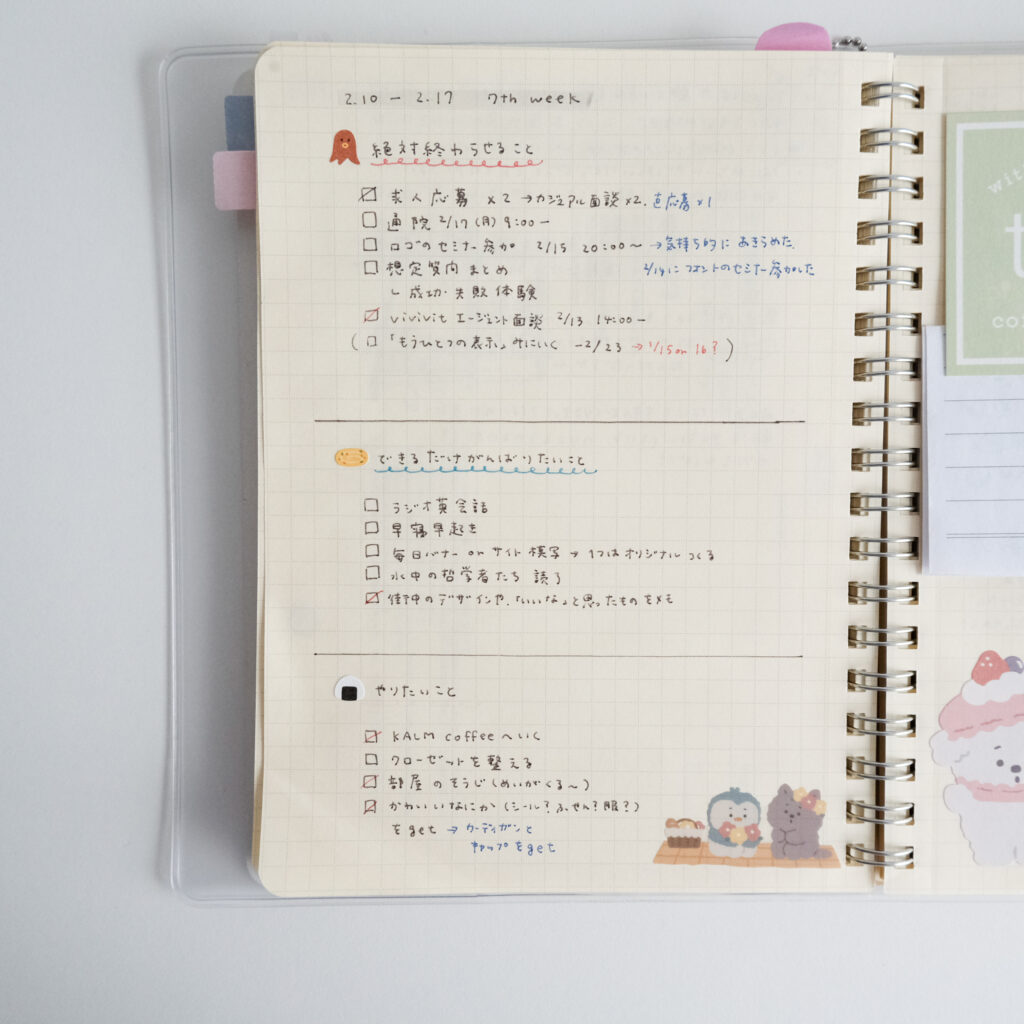 2.10 — 2.17 7th week
絶対終わらせること
求人応募 ×2 →カジュアル面談×2. 直応募×1
通院 2/17(月) 9:00—
ロゴのセミナー参加 2/15 20:00〜 →気持ち的にあきらめた.
想定質問まとめ 2/14にフォントのセミナー参加した
↳ 成功・失敗体験
vivivit エージェント面談 2/13 14:00—
(□「もうひとつの表示」みにいく —2/23 →2/15 or 16?)
できるだけがんばりたいこと
ラジオ英会話
早寝早起き
毎日バナー or サイト模写 → 1つはオリジナルつくる
水中の哲学者たち 読了
街中のデザインや、「いいな」と思ったものをメモ
やりたいこと
KALM coffeeへいく
クローゼットを整える
部屋のそうじ(めいがくる〜)
かわいいなにか(シール?ふせん?服?)
をget → カーディガンと
キャップをget
wit
t
co